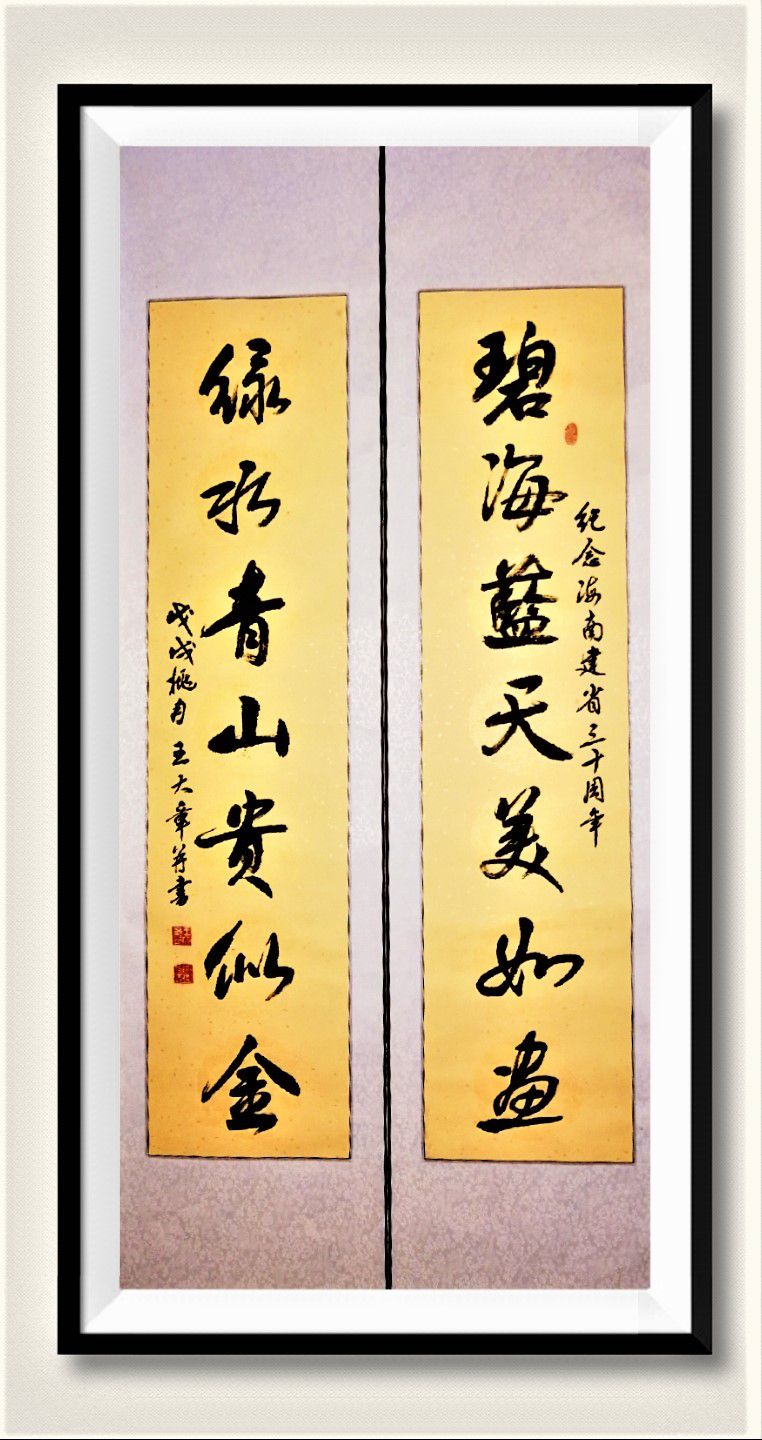 碧海藍天美如画
纪念海南建省三十周年
绿水青山贵似金
戊戌桃月王大章并书